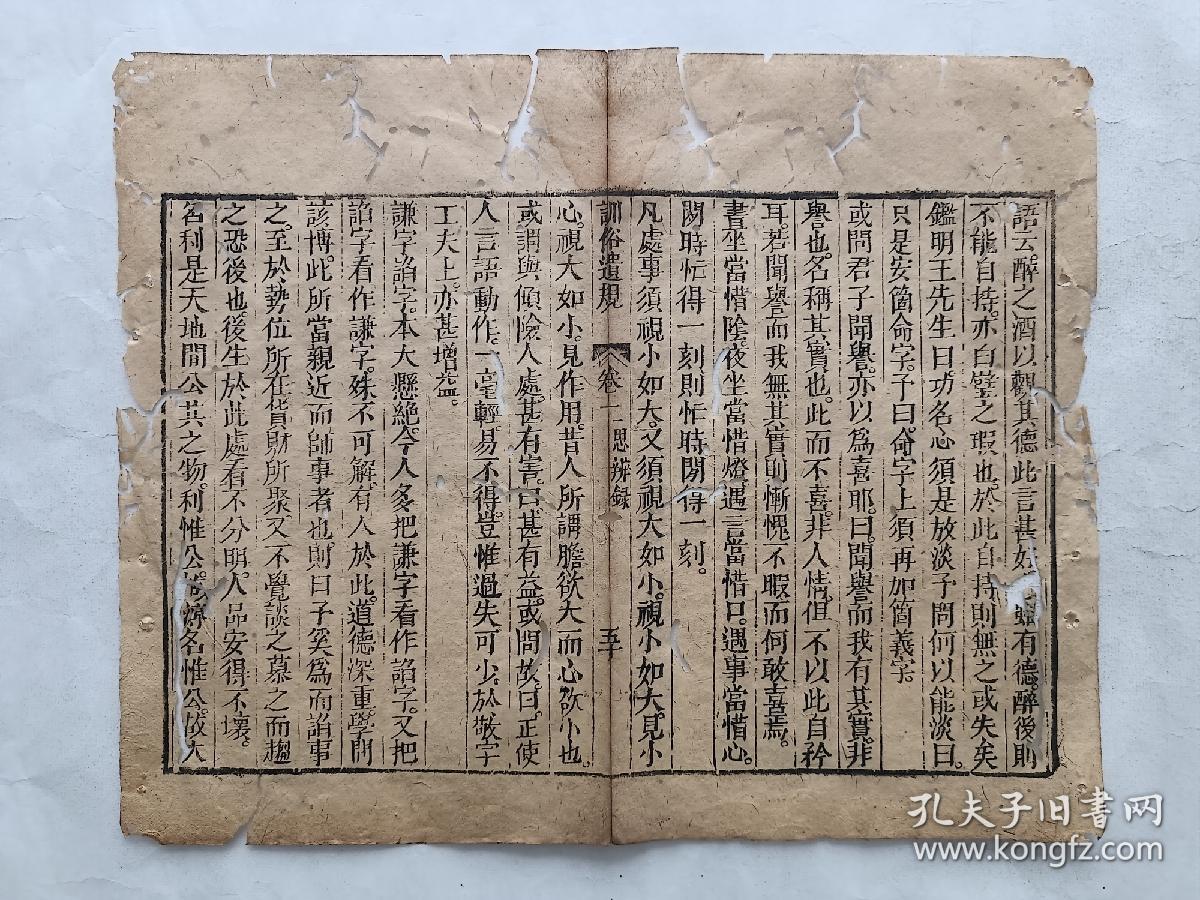 語云醉之酒以觀其德此言甚好有德醉後則
不能自持亦白璧之瑕也於此自持則無之或失矣
鑑明王先生曰功名心須是放淡予問何以能淡曰
只是安箇命字子曰命字上須再加箇義字
或問君子聞譽亦以爲喜耶曰聞譽而我有其實非
譽也名稱其實也此而不喜非人情但不以此自矜
耳若聞譽而我無其實則慚愧不暇而何敢喜焉
晝坐當惜陰夜坐當惜燈遇言當惜口遇事當惜心
閑時忙得一刻則忙時閑得一刻
凡處事須視小如大又須視大如小視小如大見小
訓俗遺規 卷二 思辨錄 五
心視大如小見作用昔人所謂膽欲大而心欲小也
或謂與傾險人處甚有害曰甚有益或問故曰正使
人言語動作一毫輕易不得豈惟過失可少於敬字
工夫上亦甚增益
謙字諂字本大懸絕今人多把謙字看作諂字又把
諂字看作謙字殊不可解有人於此道德深重學問
該博此所當親近而師事者也則曰予奚爲而諂事
之至於勢位所在貨財所聚又不覺談之慕之而趨
之恐後也後生於此處看不分明人品安得不壞
名利是天地間公共之物利惟公名惟公故大